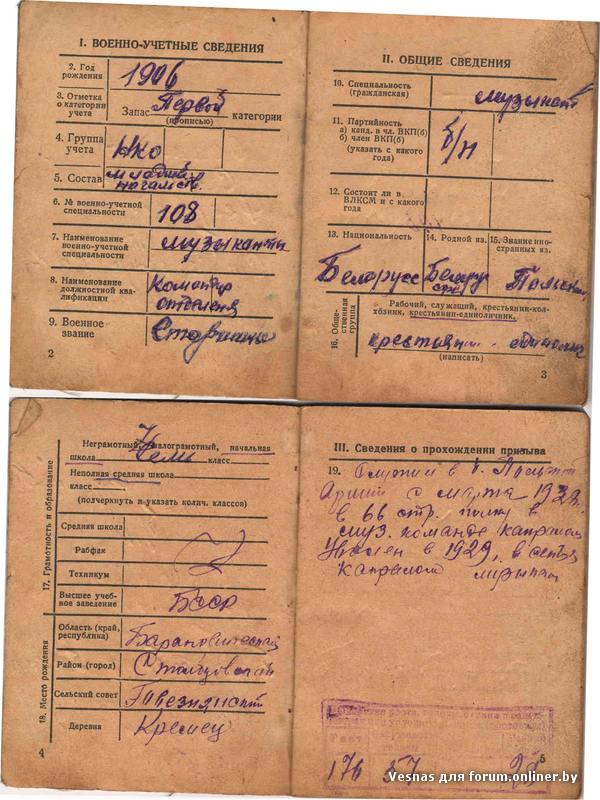 I. ВОЕННО-УЧЕТНЫЕ СВЕДЕНИЯ
2. Год рождения 1906
3. Отметка о категории учета
Запас Первой категории
(прописью)
4. Группа учета НКО
5. Состав младший начальств.
6. № военно-учетной специальности 108
7. Наименование военно-учетной специальности музыканты
8. Наименование должностной квалификации Командир отделеня
9. Военное звание
2
II. ОБЩИЕ СВЕДЕНИЯ
10. Специальность (гражданская) музыкант
11. Партийность
а) канд. в чл. ВКП(б)
б) член ВКП(б)
(указать с какого года)
б/п
12. Состоит ли в ВЛКСМ и с какого года
13. Национальность Белорусс
14. Родной яз. Белорус
15. Знание иностранных яз. Польский
16. Общественная группа
Рабочий, служащий, крестьянин-колхозник, крестьянин-единоличник.
крестьянин
(написать)
3
17. Грамотность и образование
Неграмотный, малограмотный, начальная
школа класс
Неполная средняя школа
класс
(подчеркнуть и указать колич. классов)
Средняя школа
Рабфак
Техникум
Высшее учебное заведение
БССР
18. Место рождения
Область (край, республика) Барановичская
Район (город) Столцовский
Сельский совет
Деревня Кремец
4
III. Сведения о прохождении призыва
19. Служил в б. Польской
Армии с марта 1928
в 66 стр. полку в
муз. команде капралом
Уволен в 1929
капралом
176 57
5
Vesnas для forum.onliner.by